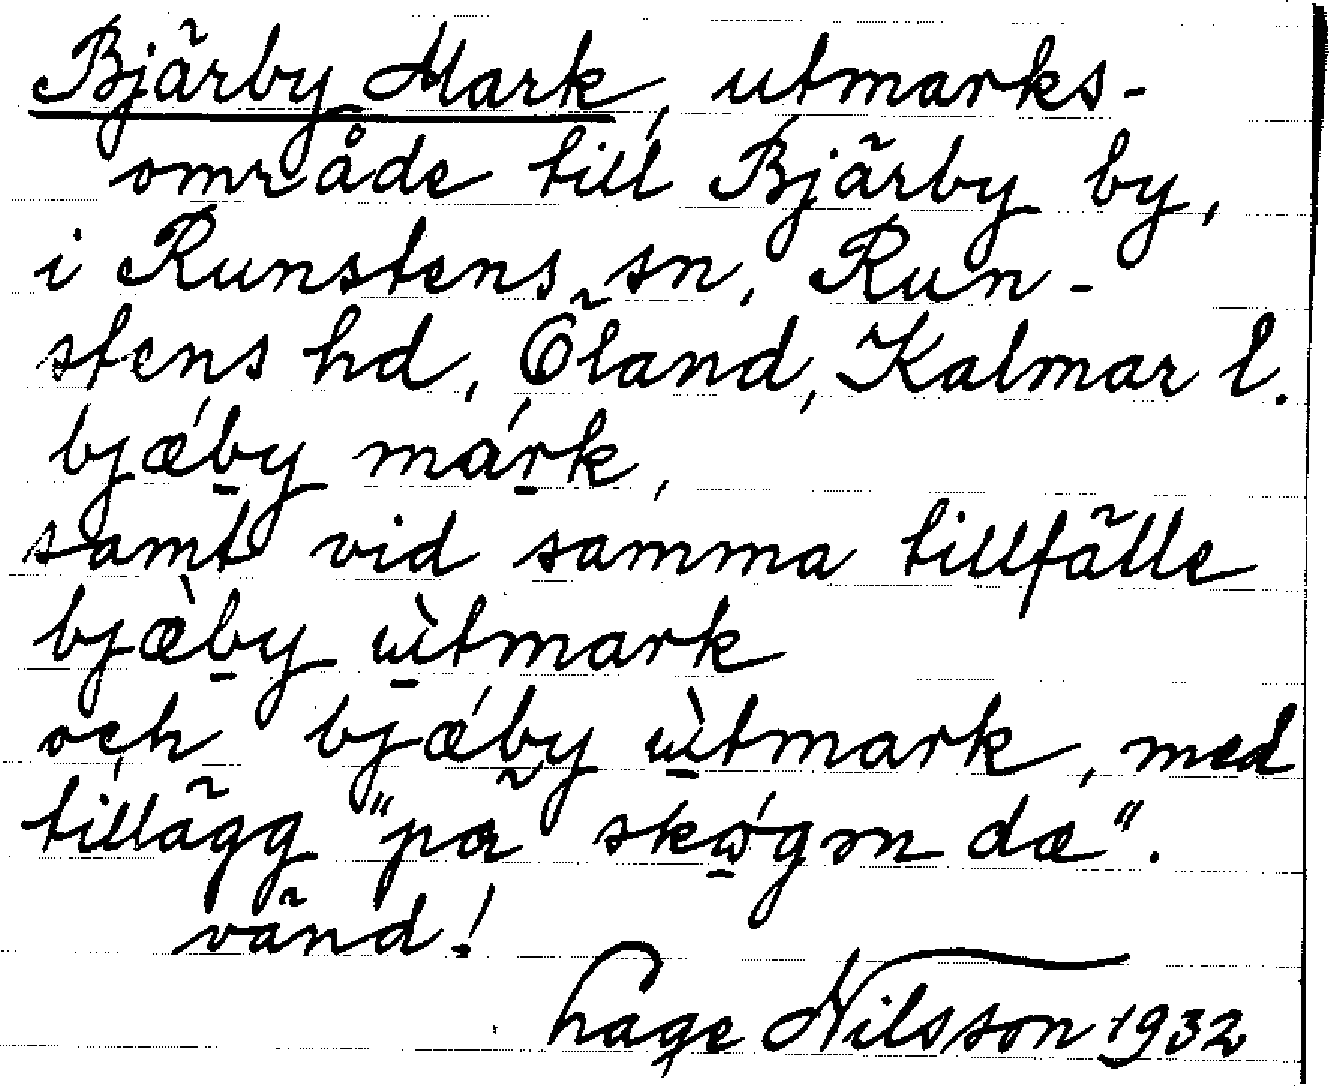 Bjärby Mark, utmarks-
område till Bjärby by,
i Runstens sn, Run-
stens hd, Öland, Kalmar l.
bjǽby márk,
samt vid samma tillfälle
bjæ̀by ùtmark
och bjǽby ùtmark, med
tillägg "på skógen dæ".
vänd!
Lage Nilsson 1932